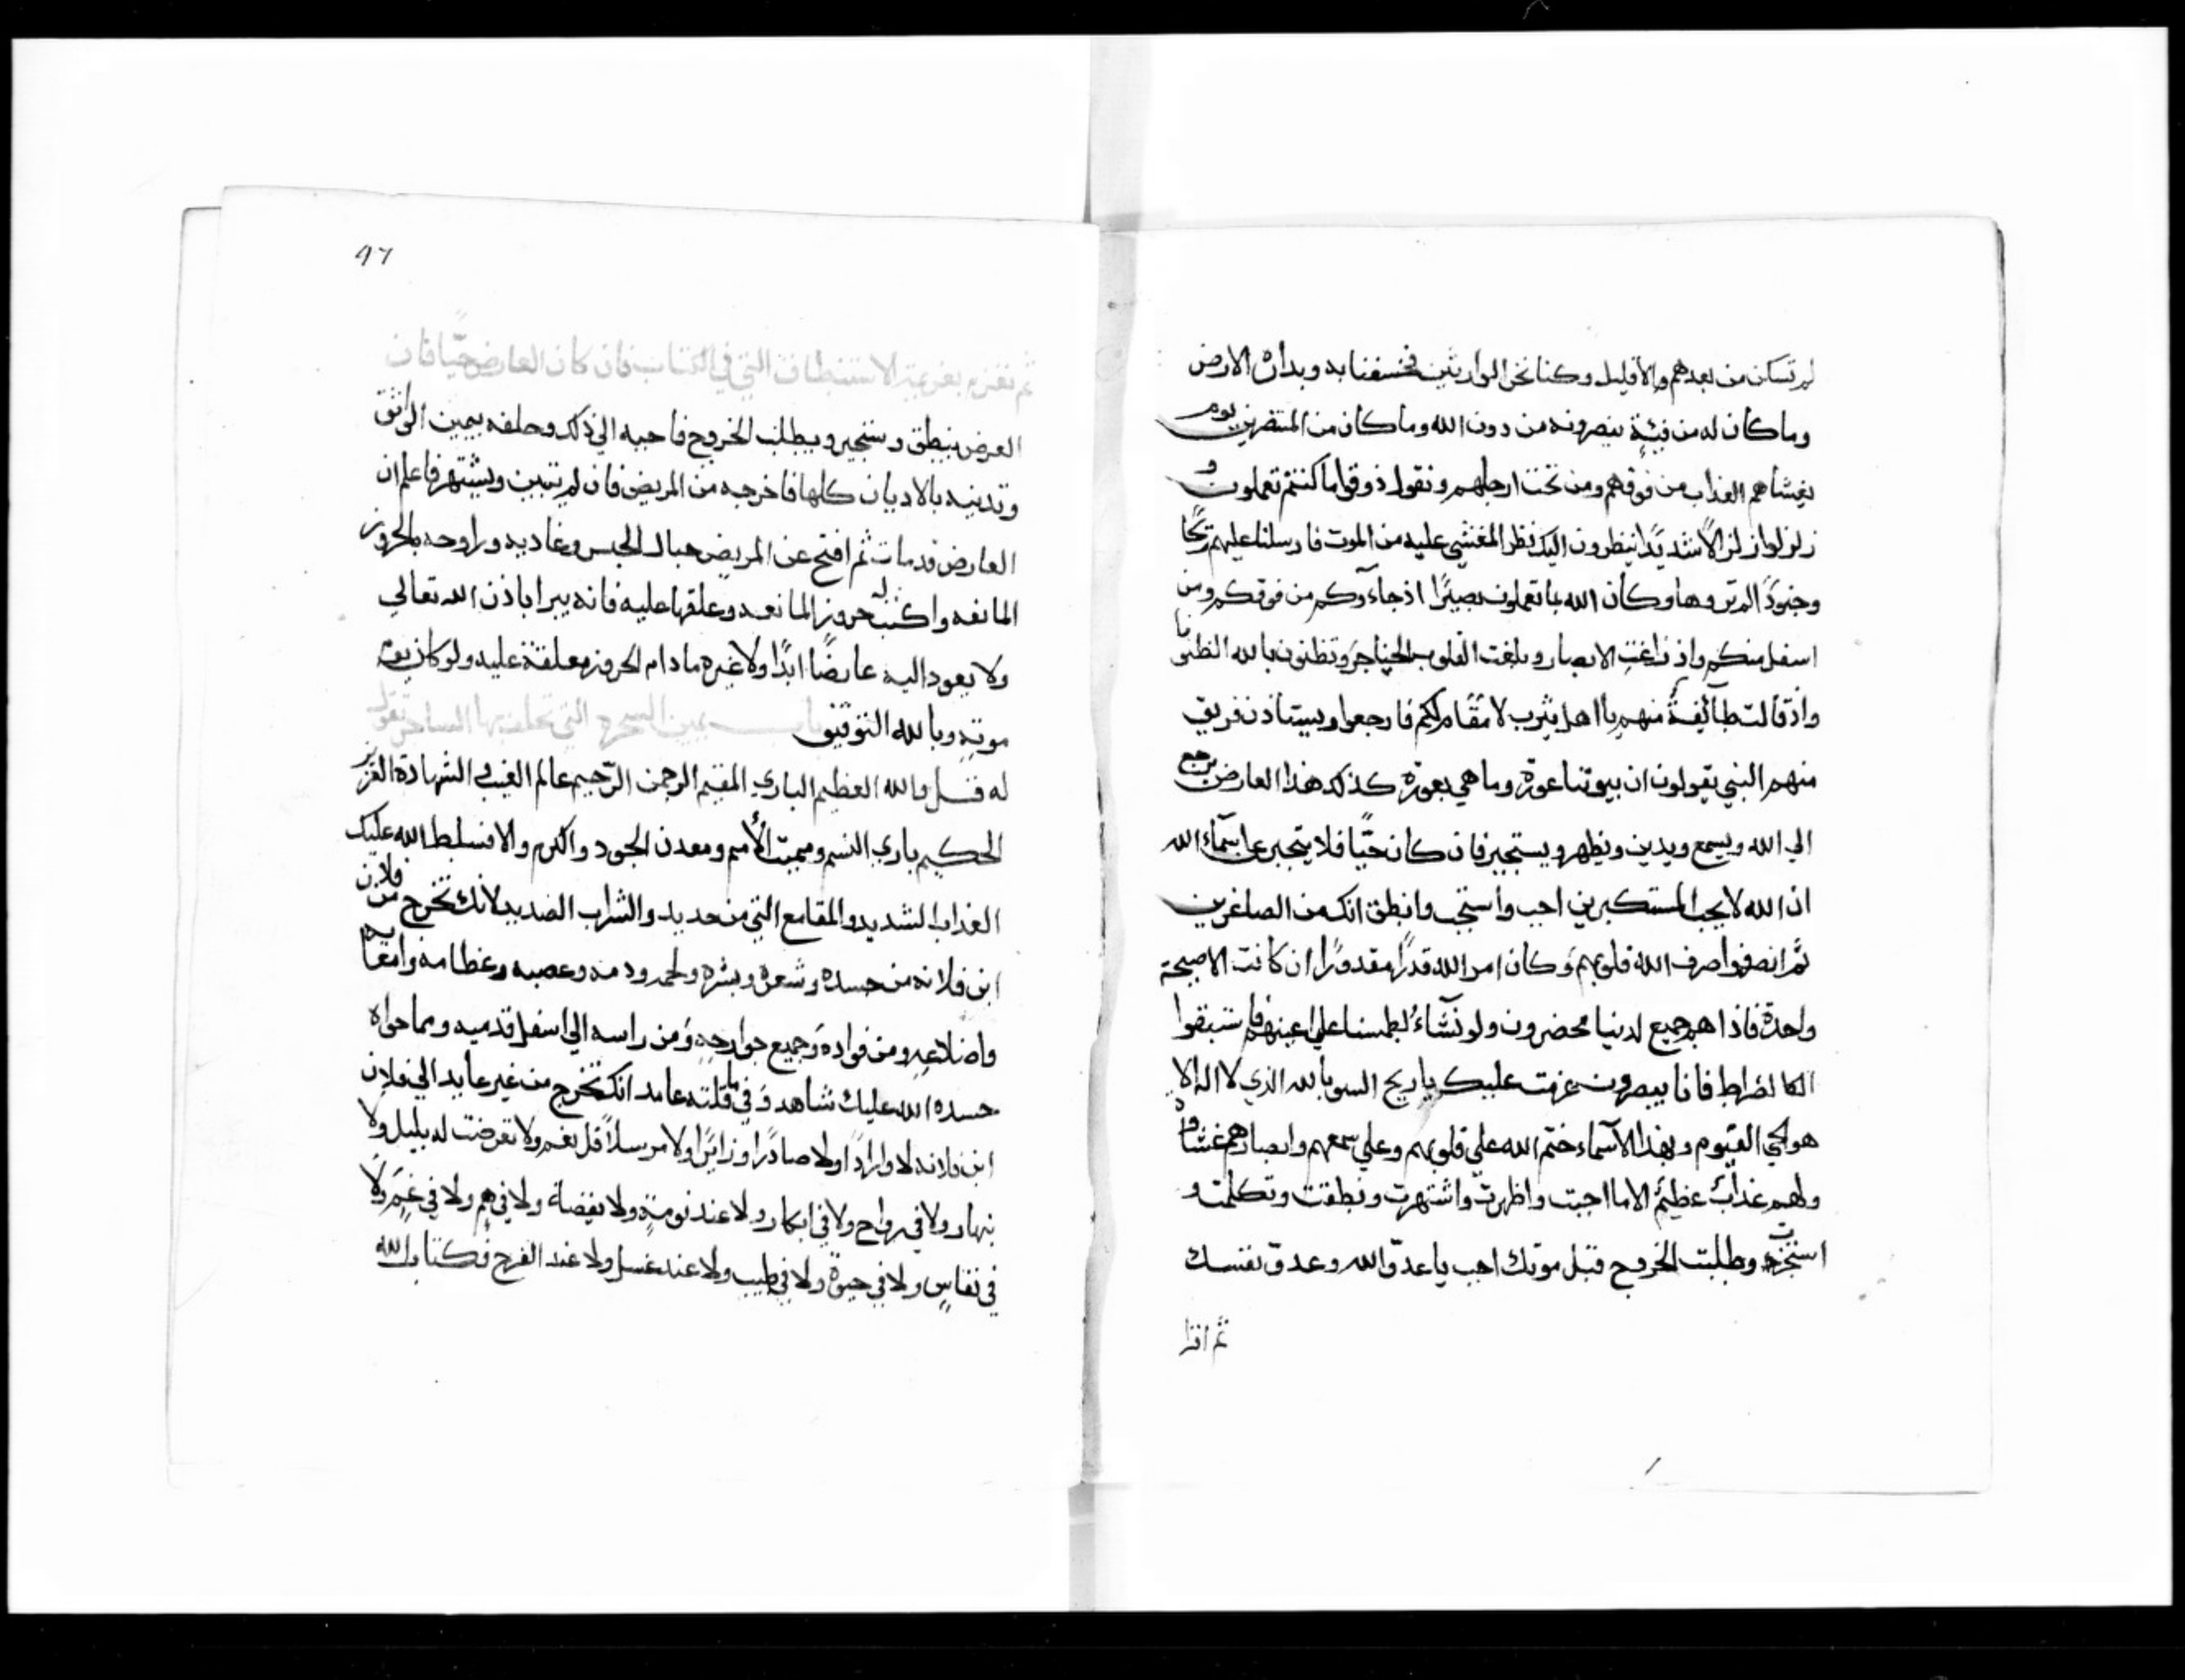 لم تسكن من بعدهم الا قليل وكنا نحن الوارثين فخسفنا به وبداره الارض
وما كان له من فيئة ينصرونه من دون الله وما كان من المنتصرين يوم
يغشاهم العذاب من فوقهم ومن تحت ارجلهم ونقول ذوقوا ما كنتم تعملون و
زلزلوا زلزالاً شديدًا ينظرون اليك نظر المغشي عليه من الموت فارسلنا عليهم ريحًا
وجنودًا لم تروها وكان الله بما تعملون بصيرًا اذ جاءوكم من فوقكم ومن
اسفل منكم واذ زاغت الابصار وبلغت القلوب الحناجر وتظنون بالله الظنونا
واذ قالت طآئفة منهم يا اهل يثرب لا مقام لكم فارجعوا ويستاذن فريق
منهم النبي يقولون ان بيوتنا عورة وما هي بعورة كذلك هذا العارض يرجع
الي الله ويسمع ويدين ويظهر ويستجير فان كان حيًّا فلا يتجبر علي اسمآء الله
ان الله لا يحب المستكبرين اجب واستجب وانطق انك من الصاغرين
ثم انصرفوا صرف الله قلوبهم وكان امر الله قدرًا مقدورًا ان كانت الا صيحة
واحدة فاذا هم جميع لدينا محضرون ولو نشآء لطمسنا علي اعينهم فاستبقوا
الصراط فانا يبصرون عزمت عليك يا ريح السو بالله الذي لا اله الا
هو الحي القيوم وبهذا الاسماء ختم الله علي قلوبهم وعلي سمعهم وابصارهم غشاوة
ولهم عذاب عظيم الا ما اجبت واظهرت واشتهرت ونطقت وتكلمت و
استجرت وطلبت الخروج قبل موتك اجب يا عدو الله وعدو نفسك
ثم اقرا
٩٦
ثم تعزم بعزيمة الاستنطاق التي في الكتاب فان كان العارض حيًّا فان
العرض ينطق ويستجير ويطلب الخروج فاجبه الي ذلك وحلفه بيمين الواثق
وتدينه بالاديان كلها فاخرجه من المريض فان لم تبين ويشتهر فاعلم ان
العارض قد مات ثم افتح عن المريض حبال الحبس وغاديه وراوحه بالحروز
المانعه واكتب له حروز المانعه وعلقها عليه فانه يبرا باذن الله تعالي
ولا يعود اليه عارضًا ابدًا ولا غيره ما دام الحروز معلقة عليه ولو كان
موته وبالله التوفيق باب يمين السحرة التي تحلف بها الساحر تقول
له قل والله العظيم الباري المقيم الرحمن الرّحيم عالم الغيب والشهادة العزيز
الحكيم باري النسم ومميت الأمم ومعدن الجود والكرم والا فسلط الله عليك
العذاب الشديد والمقامع التي من حديد والشراب الصديد لانك تخرج من فلان
ابن فلانه من جسده وشعره وبشره ولحمه ودمه وعصبه وعظامه وامعايه
واضلاعه ومن فواده وجميع جوارحه ومن راسه الي اسفل قدميه ومما حواه
جسده الله عليك شاهد وفي ما قلته عامد انك تخرج من غير عايد الي فلان
ابن فلانه لا واردًا ولا صادرًا وزايرًا ولا مرسلاً قل نعم ولا تعرضت له بليل ولا
نهار ولا في رواح ولا في ابكار ولا عند نومة ولا يقضاة ولا في هم ولا في غم ولا
في نفاس ولا في حيوة ولا في طيب ولا عند غسل ولا عند الفرج فكتاب الله